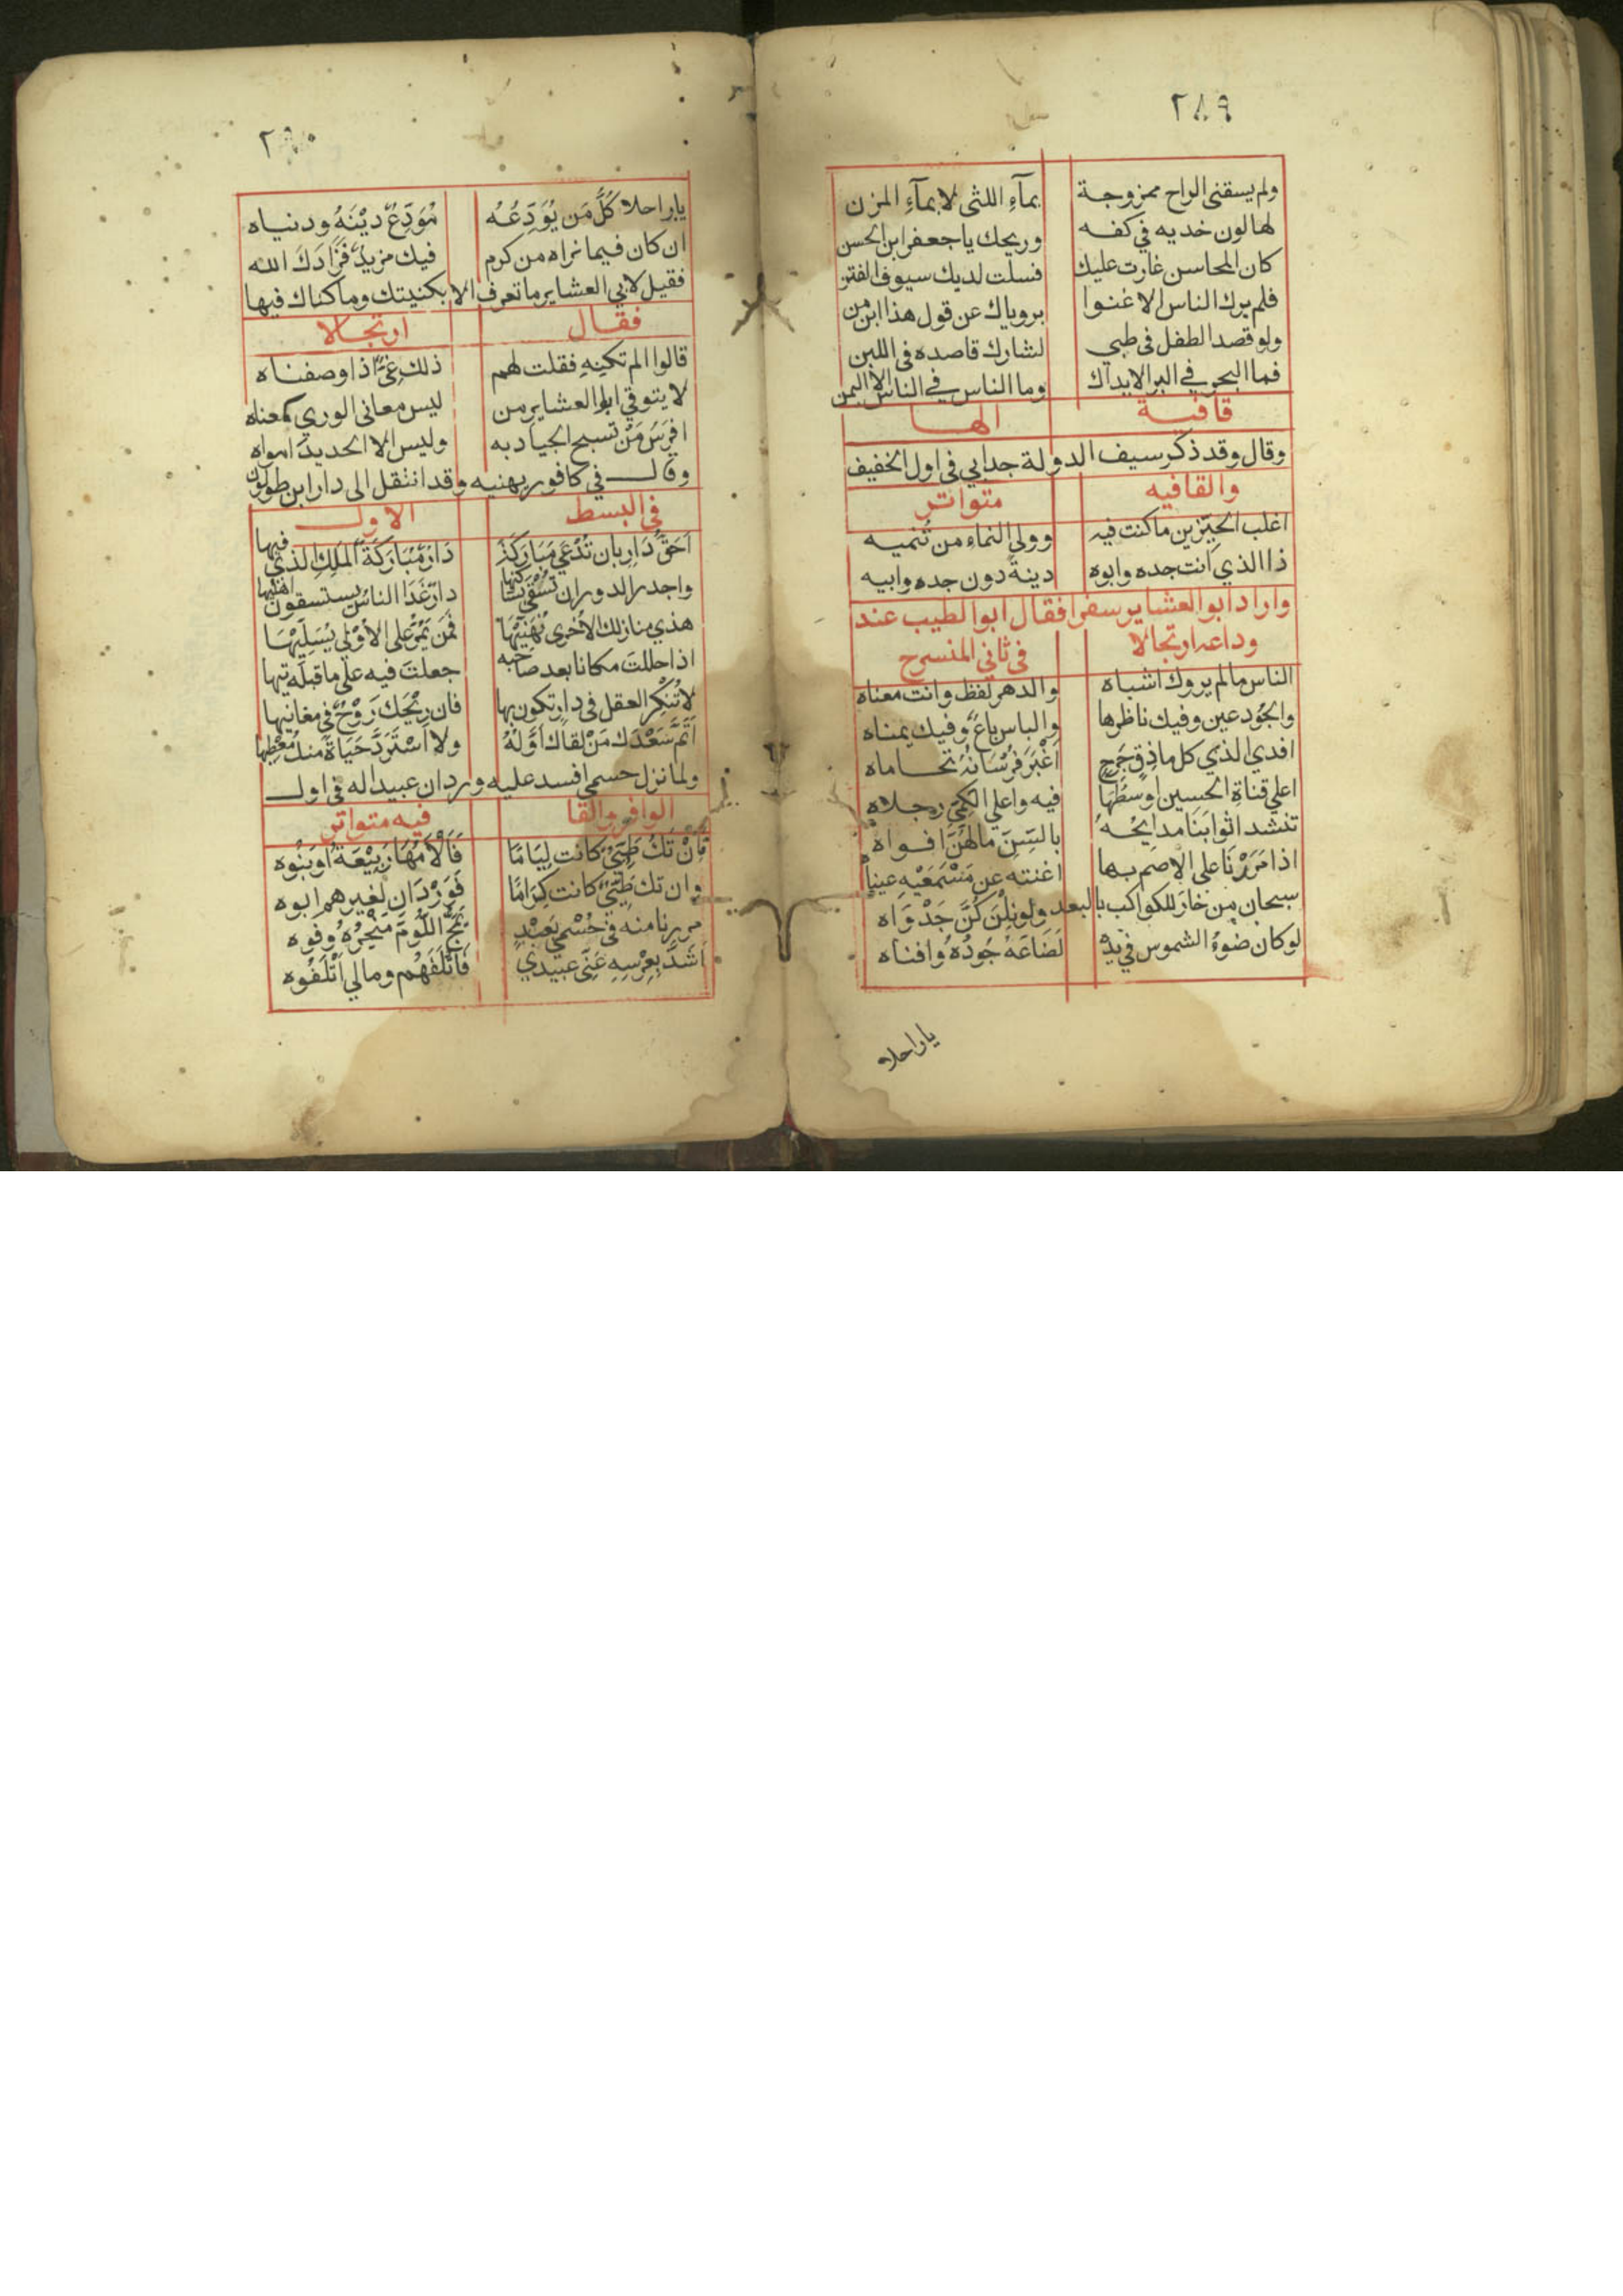 ٢٨٩
ولم يسقني الراح ممزوجة بمآءِ اللثى لا بمآءِ المزن
لها لون خديه في كفه وريحك يا جعفر ابن الحسن
كان المحاسن غارت عليك فسلت لديك سيوف الفتن
فلم يرك الناس الا غنوا برؤياك عن قول هذا ابن من
ولو قصد الطفل في طيي لشارك قاصده في اللبن
فما البحر في البر الا يداك وما الناس في الناس الا اليمن
قافية الها
وقال وقد ذكر سيف الدولة جد ابي في اول الخفيف
والقافيه متواتر
اغلب الحيّزين ما كنت فيه وولي النماء من تُنميه
ذا الذي انت جده وابوه دينةً دون جده وابيه
واراد ابو العشاير سفرا فقال ابو الطيب عند
وداعه ارتجالا في ثاني المنسرح
الناس ما لم يروك اشباه والدهر لفظ وانت معناه
والجُود عين وفيك ناظرها والباس باعٌ وفيك يمناه
افدي الذي كل ماذِق حَرِجٍ اَغْبَرَ فُرْسَانُهُ تحاماه
اعلى قناةِ الحسين اوسَطُهَا فيه واعلى الكَمِيِّ رجلاه
تنشد اثوابنَا مدايحُهُ بالسنٍ مالَهُنَّ افواه
اذا مَرَرْنَا على الاصم بها اغنته عن مَسْمَعَيْهِ عيناه
سبحان من خار للكواكب بالبعد ولو نِلْنَ كُنَّ جَدْوَاه
لو كان ضوءُ الشموس في يده لَضَاعَهُ جُودُهُ وافناه
يا راحلا
٢٩٠
يا راحلا كُلُّ مَن يُوَدِّعُهُ مُوَدِّعٌ دِيْنَهُ ودنياه
ان كان فيما نراه من كرم فيك مزيدٌ فَزَادَكَ الله
فقيل لابي العشاير ما تعرف الا بكنيتك وما كناك فيها
فقال ارتجالا
قالوا الم تكنِهِ فقلت لهم ذلك عِيٌّ اذا وصفناه
لا يتوقي ابو العشاير من ليس معاني الوري بمعناه
افرَسُ مَنْ تسبح الجياد به وليس الا الحديد امواه
وقال في كافور يهنيه وقد انتقل الى دار ابن طولون
في البسط الاول
اَحَقُّ دَارٍ بان تُدْعَي مُبَارَكَةً دَارٌ مُبَارَكَةُ المَلِكِ الذي فيها
واجدر الدور ان تُسْقَى بساكنها دارٌ غَدَا الناسُ يستسقون اهليها
هذي منازلك الاُخرى نُهَنِّيْهَا فَمَن يَمُرُّ على الاُوْلى يُسَلِّيْهَا
اذا حللت مكانا بعد صاحبه جعلت فيه على ما قبله تيها
لا تُنْكِر العقل في دارٍ تكون بها فان رِيْحَكَ رَوْحٌ في مغانيها
اَتَمَّ سَعْدَكَ مَنْ لقاك اَوَّلَهُ ولا اسْتَرَدَّ حَيَاةً منك مُعْطِيها
ولما نزل حسمي افسد عليه وردان عبيداله في اول
الوافر والقا فيه متواتر
فَاِنْ تَكُ طَيِّئٌ كانت لِيَامًا فَاَلْاَمُهَا رَبِيْعَةُ اَوْ بَنُوه
وان تك طَيِّئٌ كانت كِرَامًا فَوَرْدَانٌ لغيرهم ابوه
مررنا منه في حُسْمَي بعبْدٍ يَمُجُّ اللُؤمَ مَنْخِرُهُ وفُوه
اَشَذَّ بِعِرْسِهِ عَنِّى عبيدي فَاَتْلَفَهُم ومالي اَتْلَفُوه